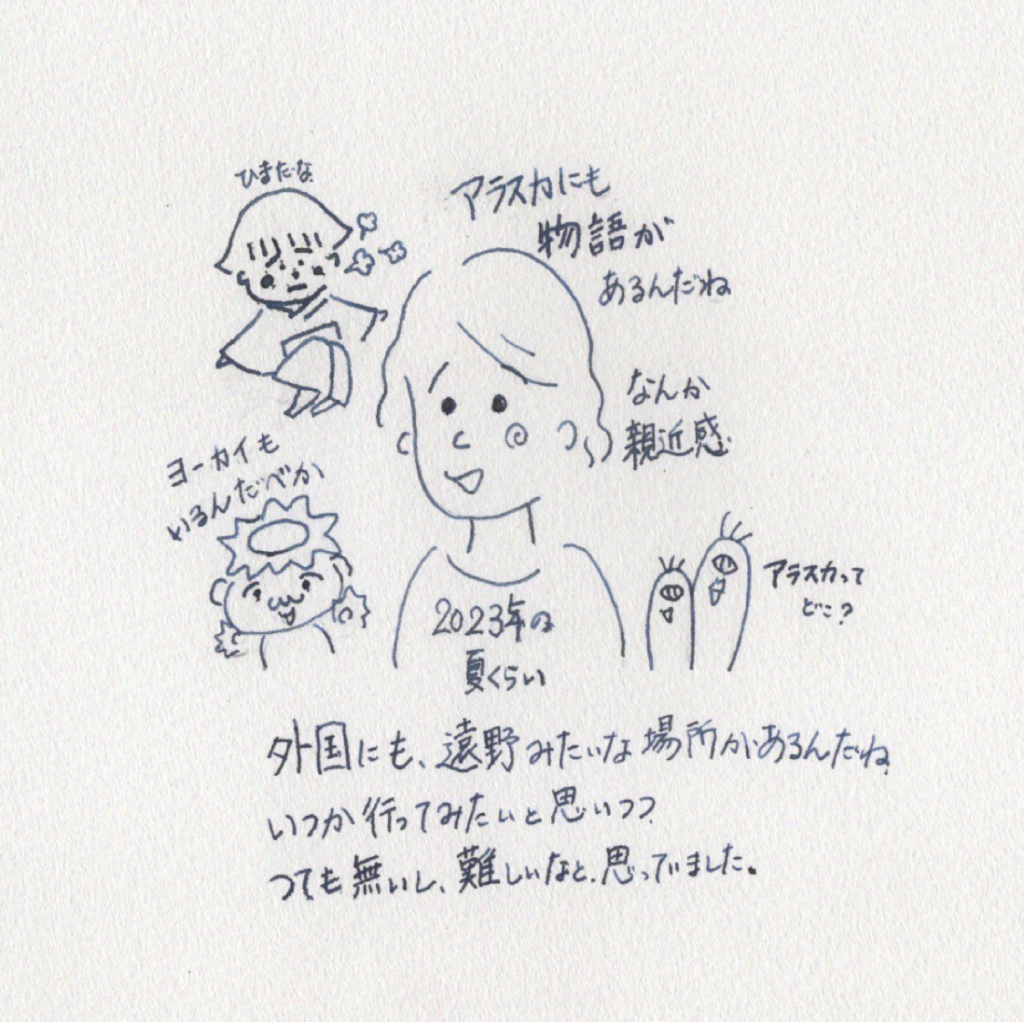 ひまだな
アラスカにも
物語が
あるんだね
なんか
親近感
ヨーカイも
いるんだべか
アラスカって
どこ?
2023年の
夏くらい
外国にも、遠野みたいな場所があるんだね
いつか行ってみたいと思いつつ
つても無いし、難しいなと、思っていました。